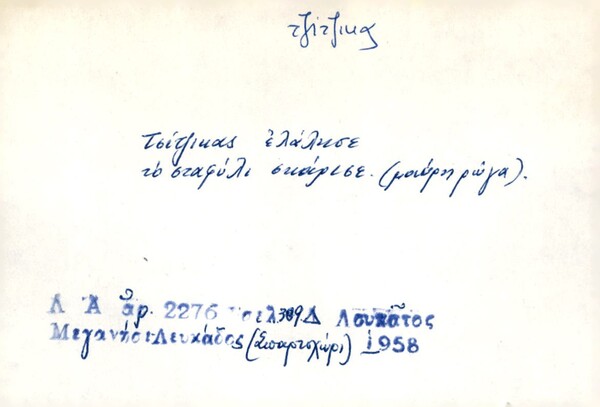 τζίτζικας
Τσίτζικας ἐλάλησε
τὸ σταφύλι σκάρισε. (μαύρη ρώγα).
Λ Α ἀρ. 2276 σελ 309 Δ Λουκᾶτος
Μεγανήσι Λευκάδος (Σπαρτοχώρι) 1958